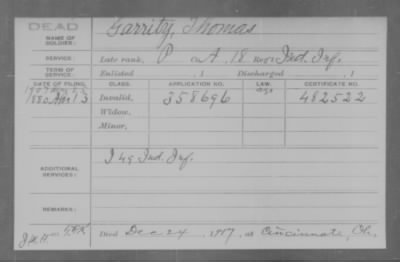 DEAD
NAME OF SOLDIER: Garrity, Thomas
SERVICE: Late rank, P Co. A, 18 Reg't Ind. Inf.
TERM OF SERVICE: Enlisted , 1 Discharged , 1
DATE OF FILING. CLASS. APPLICATION NO. LAW. CERTIFICATE NO.
1880 Apr 13 Invalid, 358696 482522
Widow,
Minor,
ADDITIONAL SERVICES: I 49 Ind. Inf.
REMARKS:
Died Dec 24, 1917, at Cincinnati, Oh.